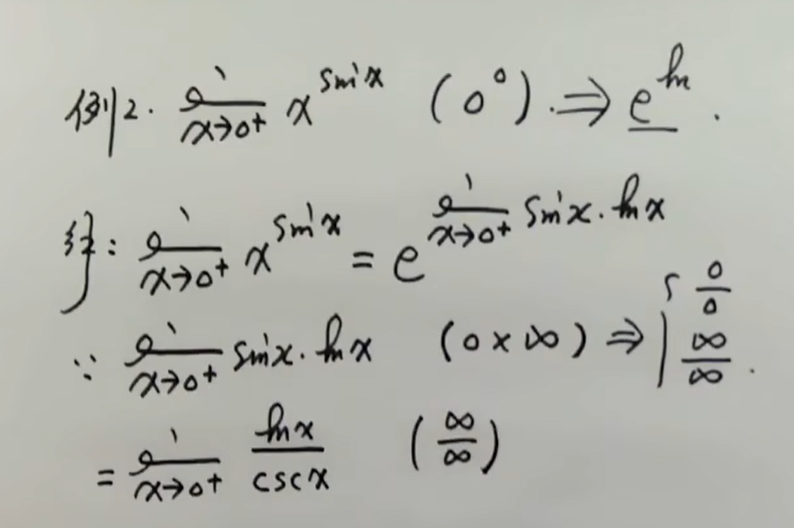 例2. lim x→0⁺ x^{sin x} (0⁰). ⇒ e^{ln}.
解: lim x→0⁺ x^{sin x} = e^{lim x→0⁺ sin x · ln x}
∵ lim x→0⁺ sin x · ln x (0 × ∞) ⇒ { 0/0 ∞/∞ .
= lim x→0⁺ ln x / csc x (∞/∞)